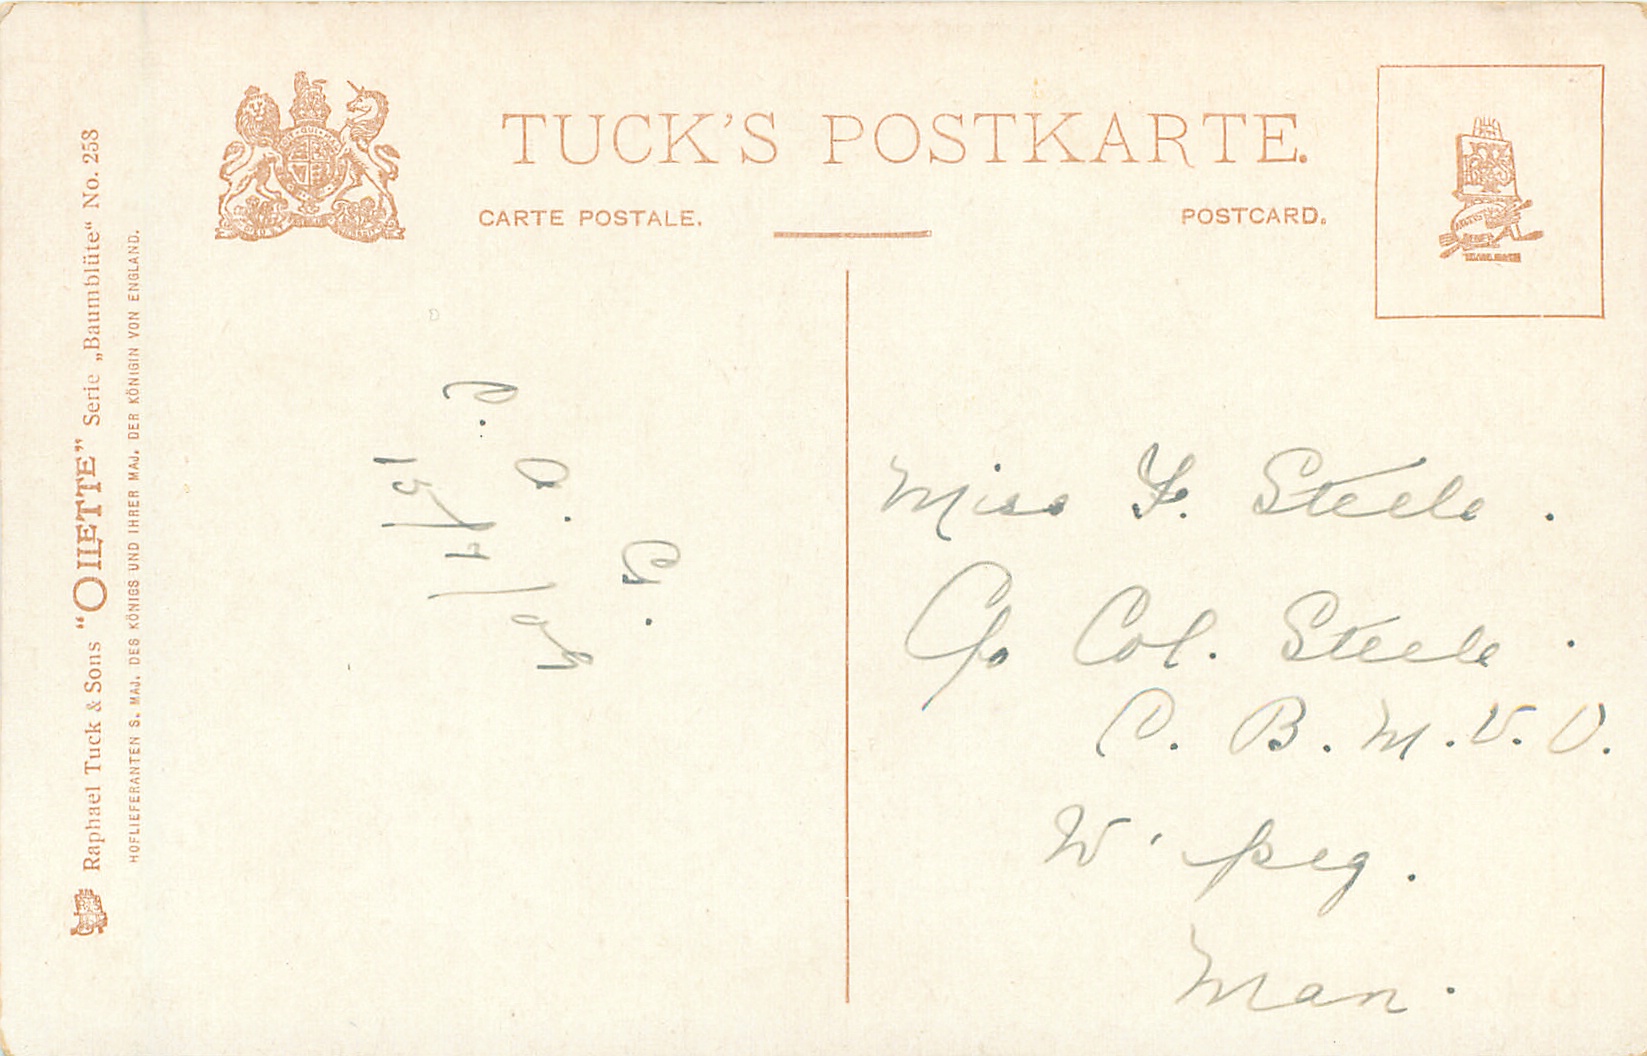 TUCK'S POSTKARTE.
CARTE POSTALE.
POSTCARD.
Raphael Tuck & Sons "OILETTE" Serie „Baumblüte“ No. 258
HOFLIEFERANTEN S. MAJ. DES KÖNIGS UND IHRER MAJ. DER KÖNIGIN VON ENGLAND.
Miss F. Steele.
C/o Col. Steele.
C. B. M. V. O.
W'peg.
Man.